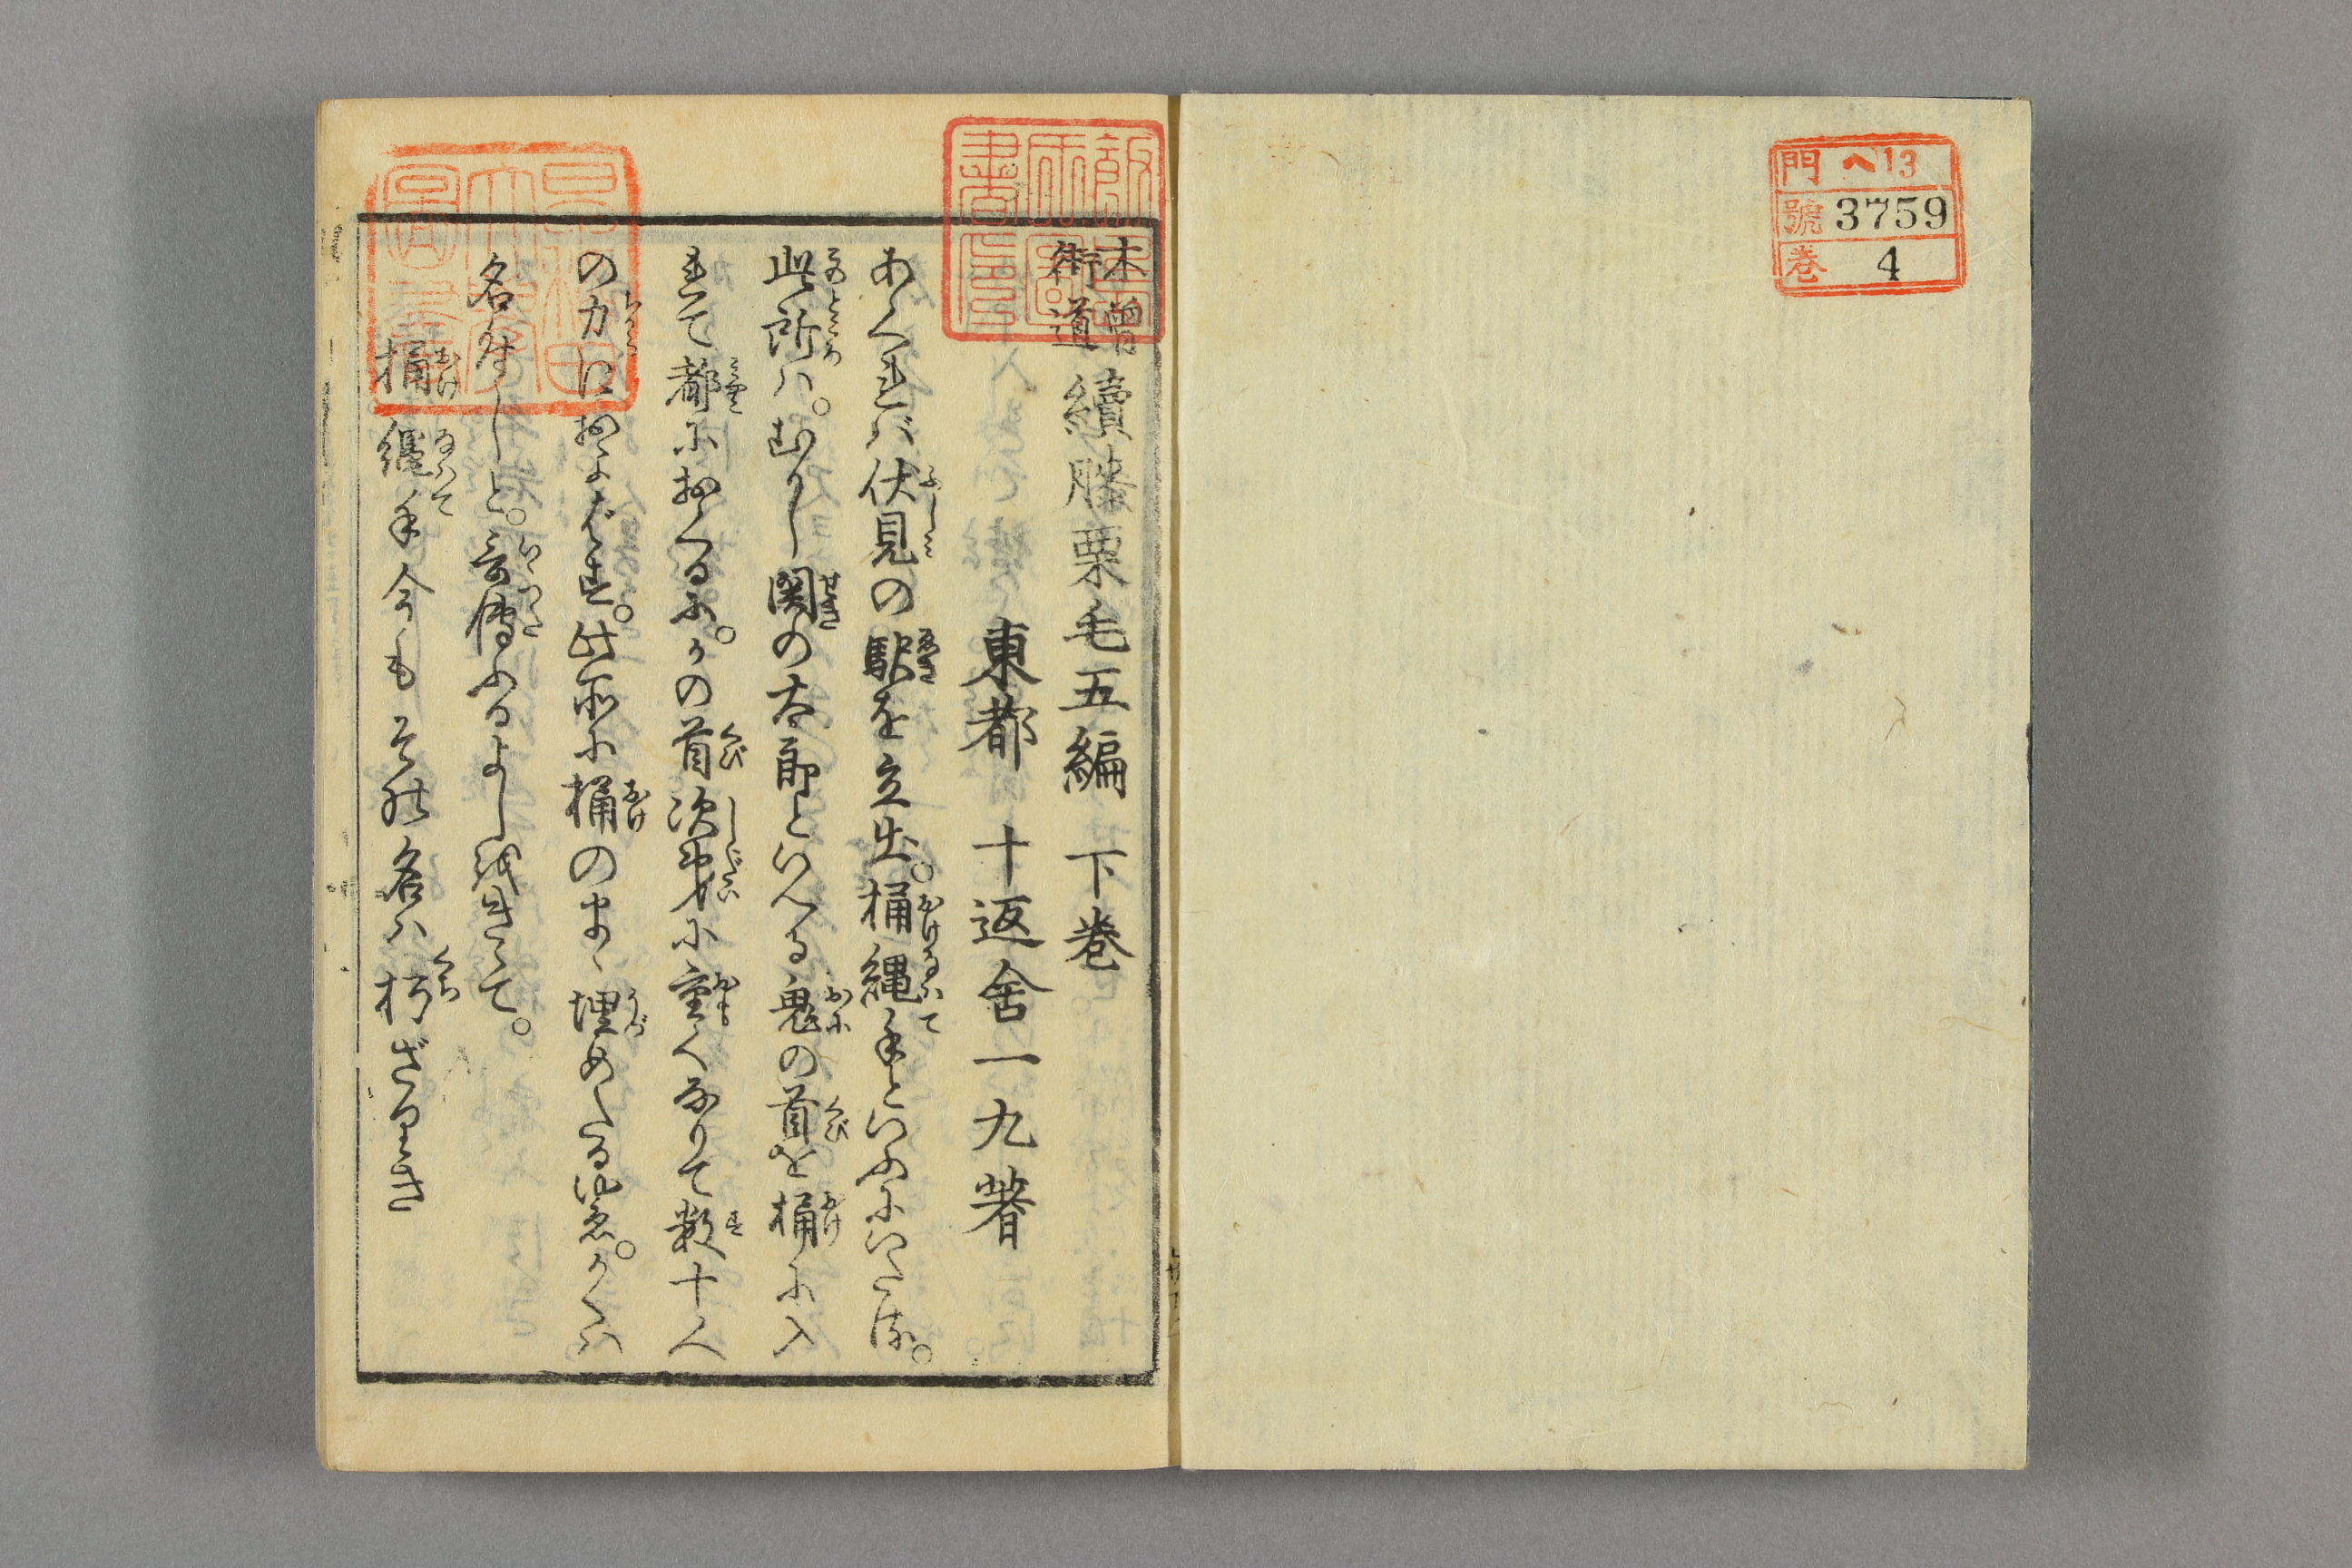 門 ヘ13
號 3759
巻 4
木曽街道 續膝栗毛五編 下巻
東都 十返舎一九著
あくれバ伏見の駅を立出。桶縄手といふにいたる。
此所ハ。むかし関の太郎といへる鬼の首を桶に入
れて都におくるに。かの首次第に重くなりて数十人
の力におよばず。此所に桶のまゝ埋めしゆゑ。かくハ
名付しと。言傳ふるよしをきゝて。
桶縄手今もその名ハ朽ざりき